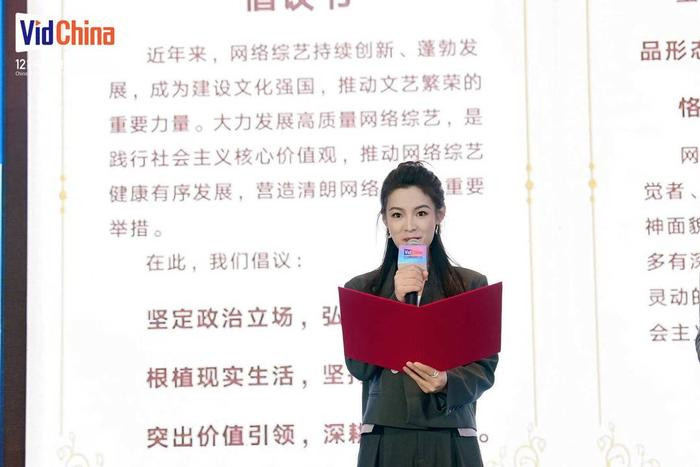 VidChina
12
China
倡议书
近年来，网络综艺持续创新、蓬勃发
展，成为建设文化强国，推动文艺繁荣的
重要力量。大力发展高质量网络综艺，是
践行社会主义核心价值观，推动网络综艺
健康有序发展，营造清朗网络 重要
举措。
在此，我们倡议：
坚定政治立场，弘
根植现实生活，坚
突出价值引领，深耕 。
品形态
恪
网
觉者、
神面貌
多有深
灵动的
会主义
VidChina